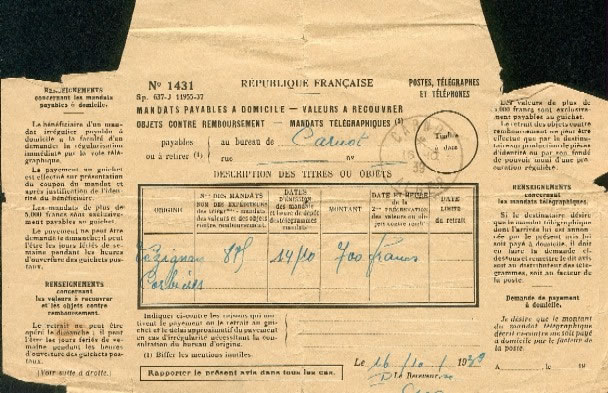 RENSEIGNEMENTS
concernant les mandats
payables à domicile.
Le bénéficiaire d'un man-
dat irrégulier payable à
domicile a la faculté d'un
demander la régularisation
immédiate par la voie télé-
graphique.
Le payement au guichet
est effectué sur présentation
du coupon du mandat et
après justification de l'iden-
tité du bénéficiaire.
Les mandats de plus de
5.000 francs sont exclusive-
ment payables au guichet.
Le payement ne peut être
demandé le dimanche; il peut
l'être les jours fériés de se-
maine pendant les heures
d'ouverture des guichets pos-
taux.
RENSEIGNEMENTS
concernant
les valeurs à recouvrer
et les objets contre
remboursement.
Le retrait ne peut être
opéré le dimanche; il peut
l'être les jours fériés de se-
maine pendant les heures
d'ouverture des guichets pos-
taux.
(Voir suite à droite.)
No 1431
Sp. 637-J 11955-37
RÉPUBLIQUE FRANÇAISE
POSTES, TÉLÉGRAPHES
ET TÉLÉPHONES
MANDATS PAYABLES A DOMICILE — VALEURS A RECOUVRER
OBJETS CONTRE REMBOURSEMENT — MANDATS TÉLÉGRAPHIQUES (1)
payables au bureau de Carnot
ou à retirer (1) rue no
Timbre
à date
DESCRIPTION DES TITRES OU OBJETS
ORIGINE
Nos DES MANDATS
NOM DES EXPÉDITEURS
des mandats
des valeurs et des objets
contre remboursement.
DATES
D'ÉMISSION
des mandats
et heure de dépôt
des télégrammes
mandats
MONTANT
DATE ET HEURE
de la
2me PRÉSENTATION
des valeurs ou objets
contre remb
DATE
LIMITE
du retrait
Lézignan 14/10 700 francs
Corbières
Indiquer ci-contre les raisons qui mo-
tivent le payement ou le retrait au gui-
chet et le délai approximatif du payement en
cas d'irrégularité nécessitant la con-
sultation du bureau d'origine.
(1) Biffer les mentions inutiles.
Rapporter le présent avis dans tous les cas.
Le 16/10/1939
Le Receveur
Les valeurs de plus de
5.000 francs sont exclusive-
ment payables au guichet.
Le retrait des objets contre
remboursement ne peut être
effectué que par le destina-
taire sur production de pièces
d'identité ou par son fondé
de pouvoir muni d'une pro-
curation régulière.
RENSEIGNEMENTS
concernant les
mandats télégraphiques.
Si le destinataire désire
que le mandat télégraphique
dont l'arrivée lui est annon-
cée par le présent avis lui
soit payé à domicile, il doit
en faire la demande ci-des-
sous et remettre le dit avis
au distributeur des télé-
grammes, soit au facteur de
la poste.
Demande de payement
à domicile.
Je désire que le montant
du mandat télégraphique
décrit ci-contre me soit payé
à domicile par le facteur de
la poste.
A , le 19